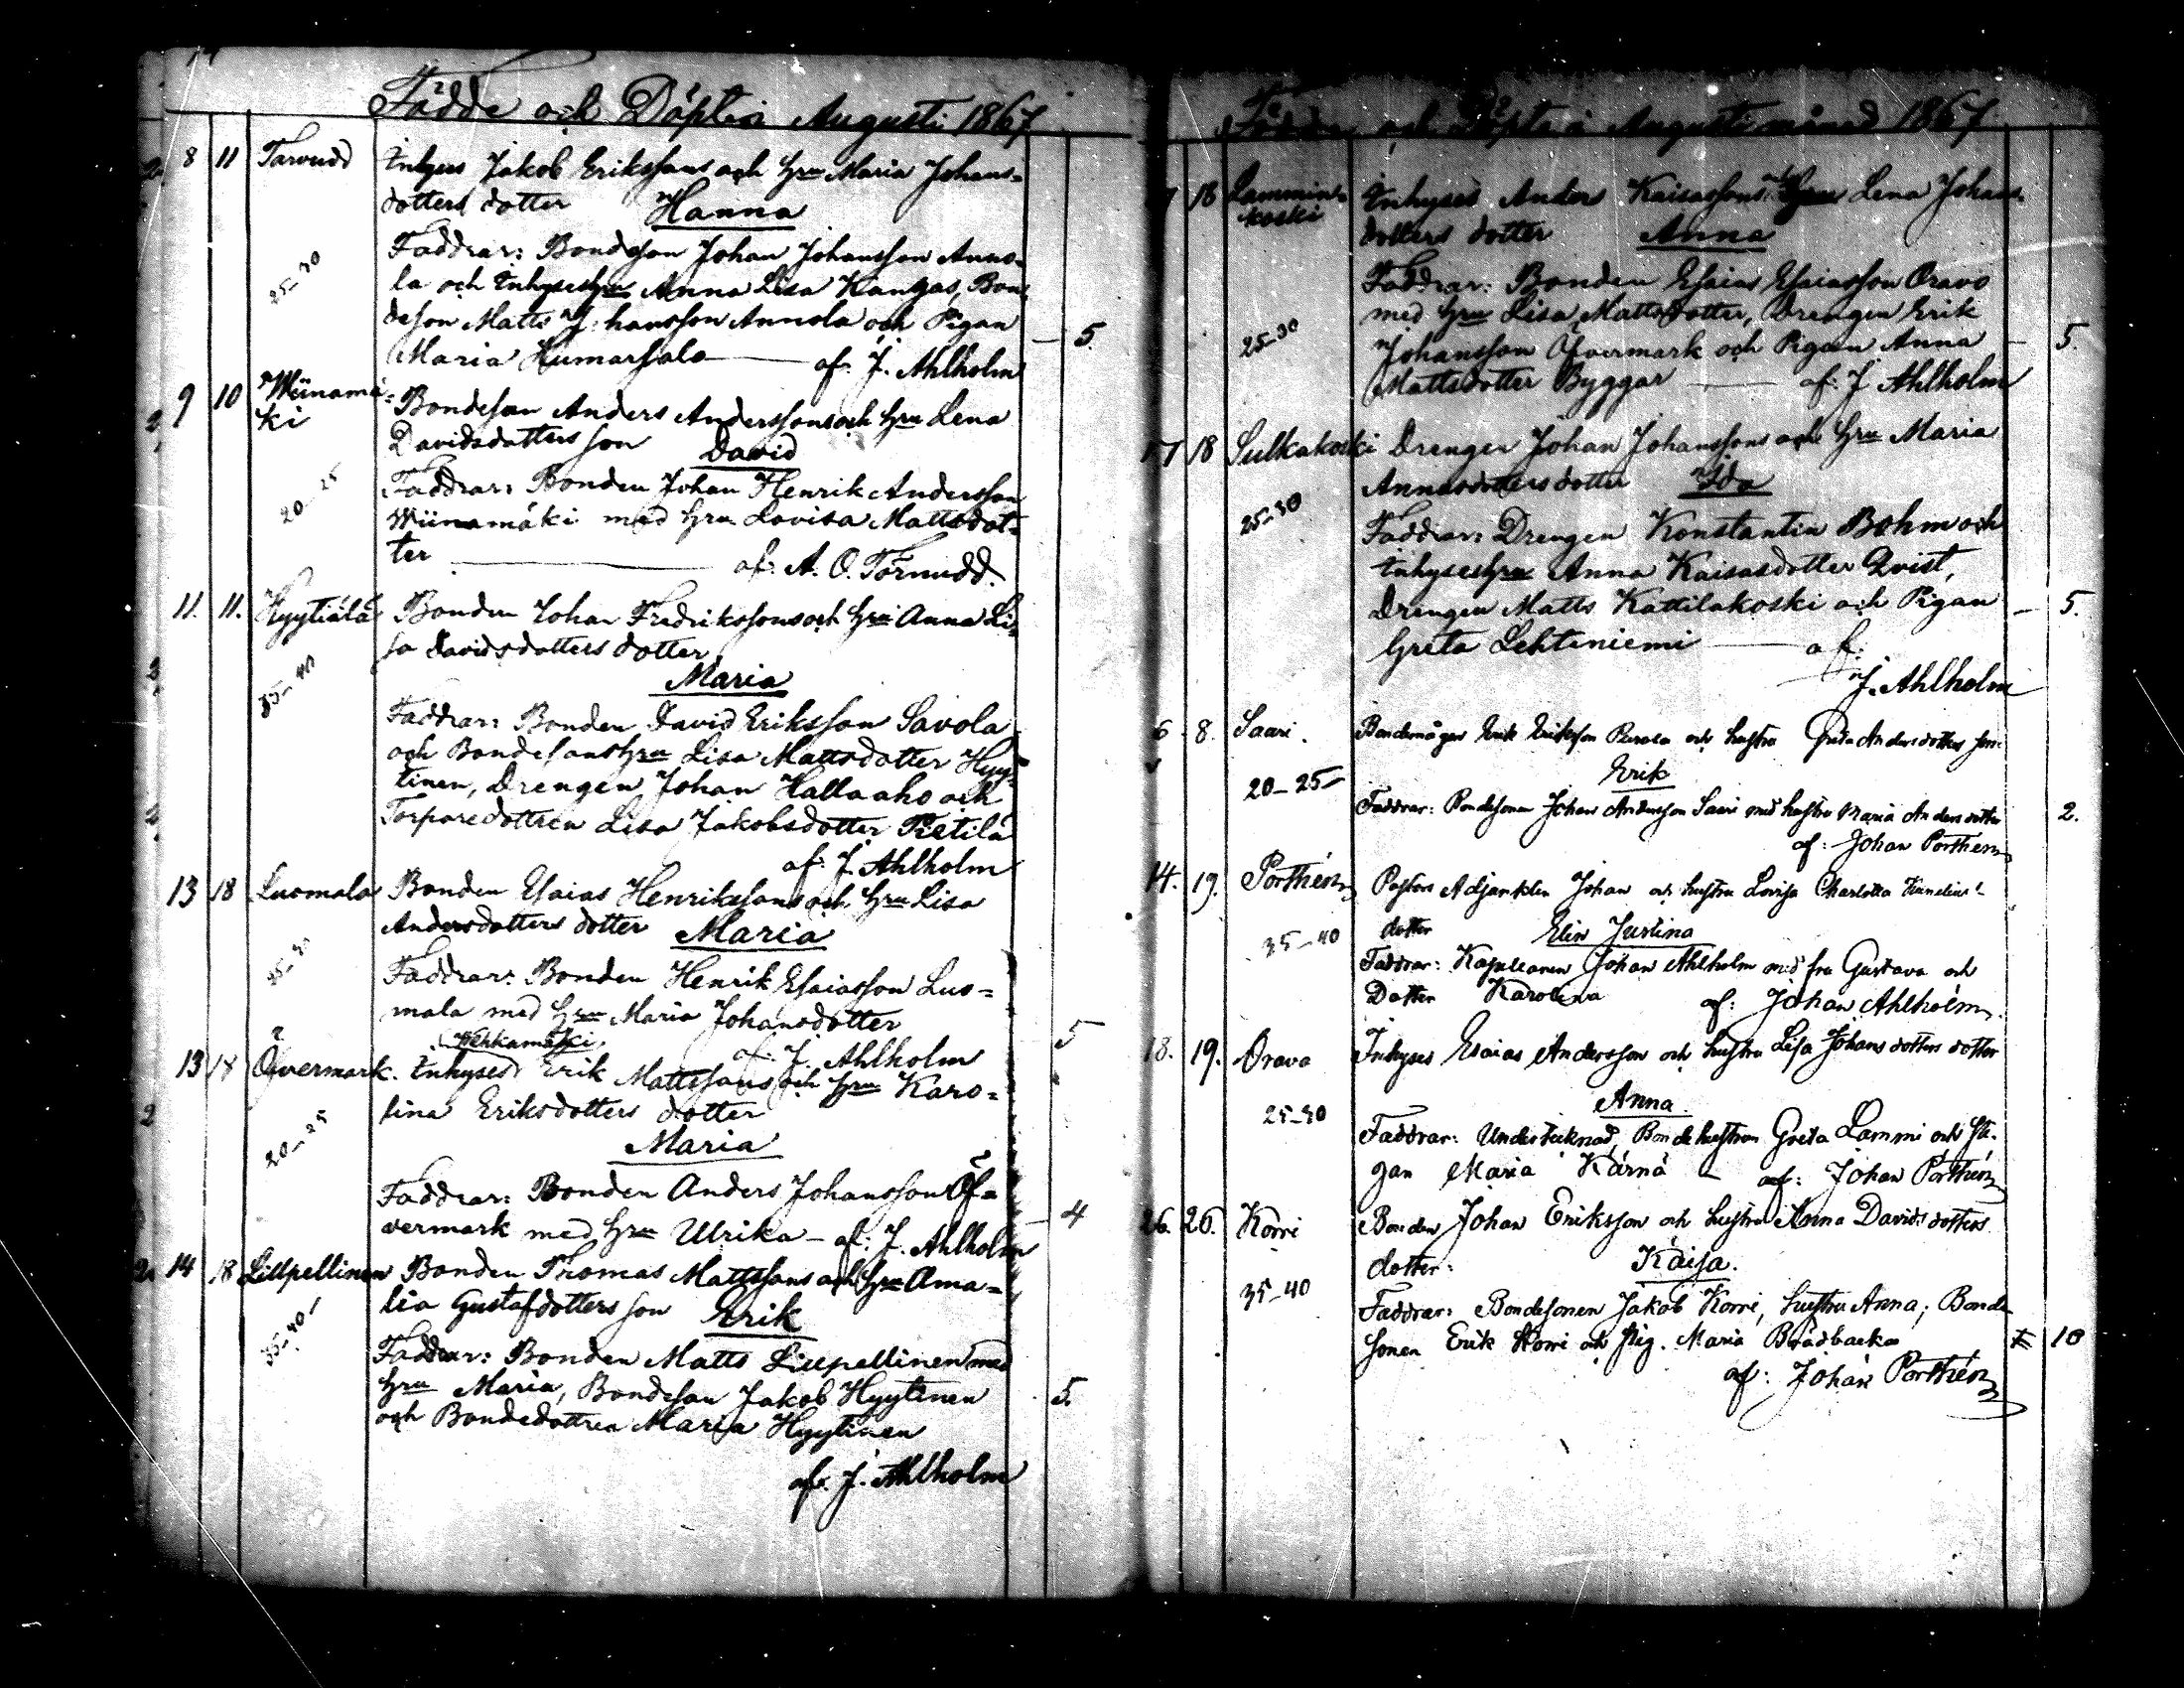 Födde och Döpte i Augusti 1867
8 11 Tarvudd Inhyses Jakob Erikssons och hru Maria Johans-
dotters dotter Hanna
25-30 Faddrar: Bondeson Johan Johansson Anno-
la och Inhyseshru Anna Lisa Kangas, Bon-
deson Matts Johansson Annola och Pigan
Maria Humarsalo — af: J. Ahlholm — 5.
9 10 Wiinamä- Bondeson Anders Anderssons och hru Lena
ki Davidsdotters son David
20-25 Faddrar: Bonden Johan Henrik Andersson
Wiinamäki med hru Lovisa Mattsdot-
ter — af: A. O. Törnudd.
11. 11. Hyytiälä Bonden Johan Fredrikssons och hru Anna Li-
sa Davidsdotters dotter
35-40 Maria
Faddrar: Bonden David Eriksson Savola
och Bondesonshru Lisa Mattsdotter Hyy-
tinen, Drengen Johan Hallaaho och
Torparedottren Lisa Jakobsdotter Pietilä
af: J. Ahlholm
13 18 Luomala Bonden Esaias Henrikssons och hru Lisa
Andersdotters dotter Maria
Faddrar: Bonden Henrik Esaiasson Luo-
mala med hru Maria Johansdotter
af: J. Ahlholm 5
Wehkamäki
13 18 Öfvermark. Inhyses Erik Mattssons och hru Karo-
lina Eriksdotters dotter
20-25 Maria
Faddrar: Bonden Anders Johansson Öf-
vermark med hru Ulrika — af: J. Ahlholm — 4
14 18 Lillpellinen Bonden Thomas Mattssons och hru Ama-
lia Gustafdotters son Erik
35-40 Faddrar: Bonden Matts Lillpellinen med
hru Maria, Bondeson Jakob Hyytinen 5.
och Bondedottren Maria Hyytinen
af: J. Ahlholm
Födde och Döpte i Augusti månad 1867
18 Lammin- Inhyses Anders Kaisassons hru Lena Johans-
koski dotters dotter Anna
Faddrar: Bonden Esaias Esaiasson Oravo
med hru Lisa Mattsdotter, Drengen Erik
25-30 Johansson Öfvermark och Pigan Anna — 5.
Mattsdotter Byggar — af: J. Ahlholm
17 18 Sulkakoski Drengen Johan Johanssons och hru Maria
Annasdotters dotter Ida
25-30 Faddrar: Drengen Konstantin Bohm och
Inhyseshru Anna Kaisasdotter Qvist,
Drengen Matts Kattilakoski och Pigan — 5.
Greta Lehteniemi — af:
J. Ahlholm
6 8. Saari. Bondemågen Erik Eriksson Perola och hustru Greta Andersdotters son
Erik
20-25 Faddrar: Bondesonen Johan Andersson Saari med hustru Maria Andersdotter 2.
af: Johan Porthén
14. 19. Porthén Pastors Adjunkten Johan och hustru Lovisa Charlotta
dotter Elin Justina
35-40 Faddrar: Kapellanen Johan Ahlholm med fru Gustava och
Dotter Karolina af: Johan Ahlholm.
18. 19. Orava Inhyses Esaias Andersson och hustru Lisa Johansdotters dotter
25-30 Anna
Faddrar: Undertecknad, Bondehustrun Greta Lammi och Pi-
gan Maria Kärnä — af: Johan Porthén
26. 26. Korri Bonden Johan Eriksson och hustru Anna Davidsdotters
dotter: Kaisa.
35-40 Faddrar: Bondesonen Jakob Korri, hustru Anna; Bonde-
sonen Erik Korri och pig. Maria Brådbacka 10
af: Johan Porthén